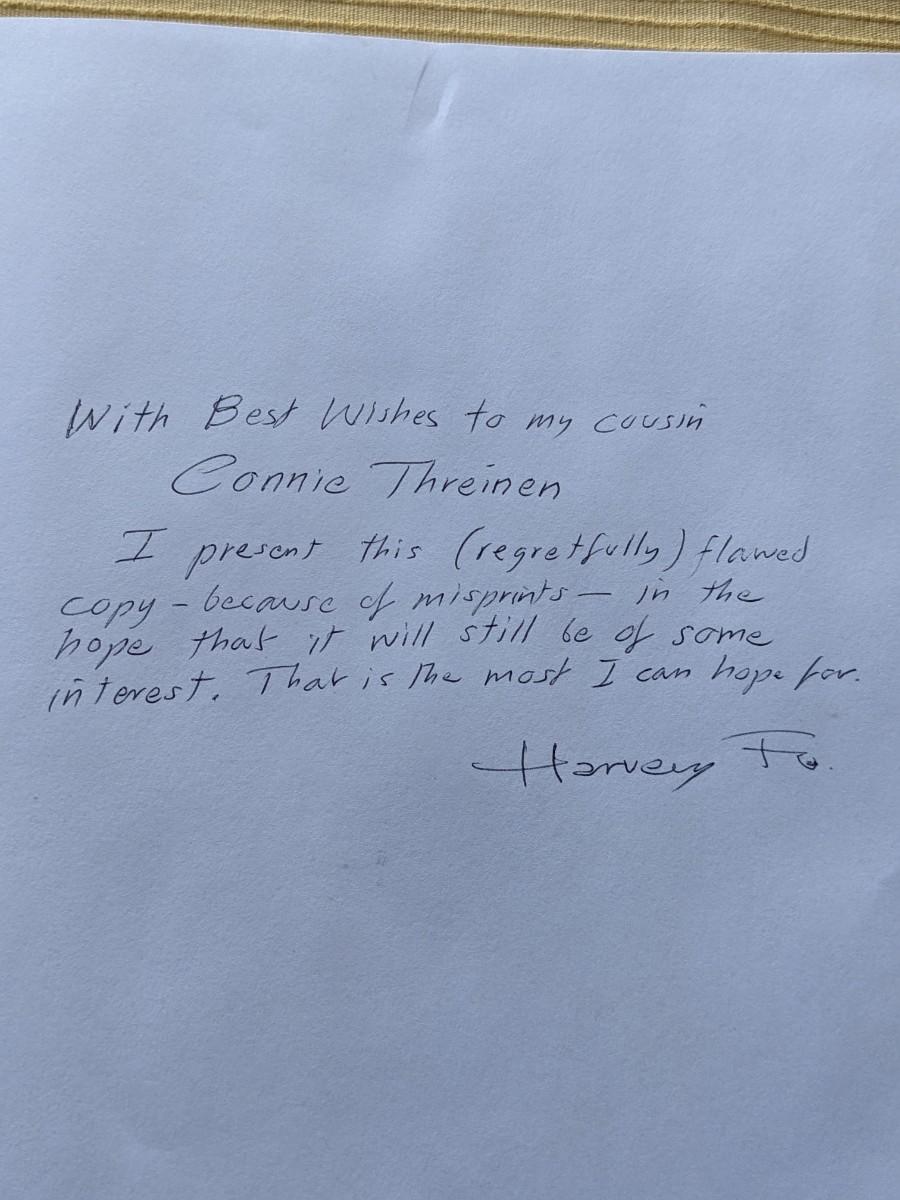 With Best Wishes to my cousin
Connie Threinen
I present this (regretfully) flawed
copy - because of misprints - in the
hope that it will still be of some
interest. That is the most I can hope for.
Harvey